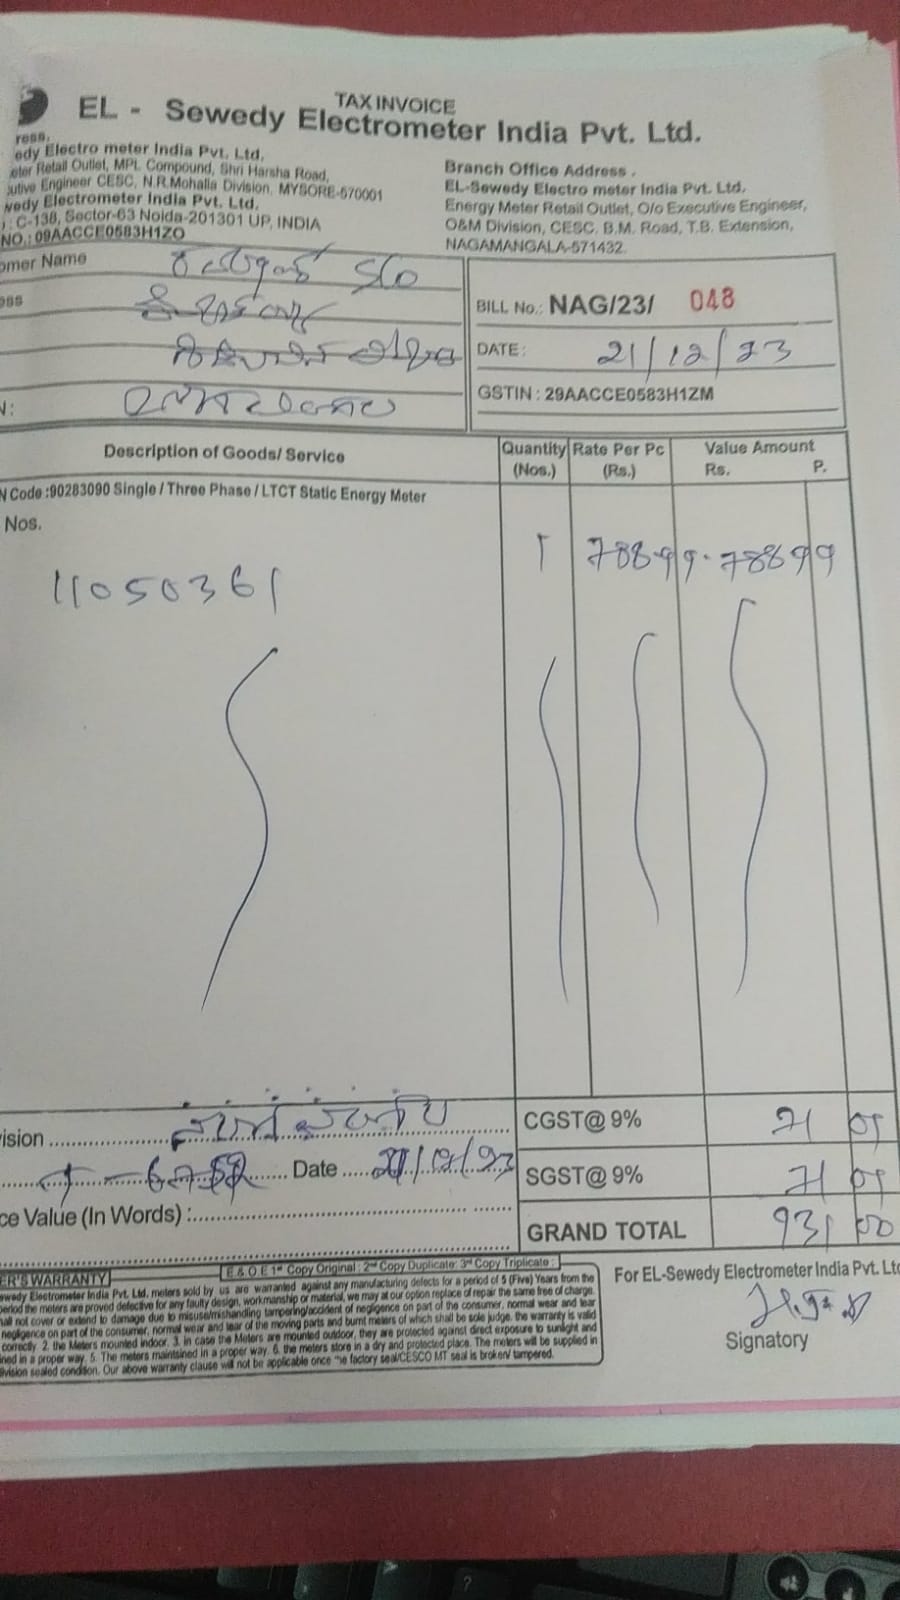 TAX INVOICE
EL - Sewedy Electrometer India Pvt. Ltd.
ress.
edy Electro meter India Pvt. Ltd,
eter Retail Outlet, MPL Compound, Shri Harsha Road,
utive Engineer CESC, N.R.Mohalla Division, MYSORE-570001
wedy Electrometer India Pvt. Ltd.
: C-138, Sector-63 Noida-201301 UP, INDIA
NO.: 09AACCE0583H1ZO
Branch Office Address .
EL-Sewedy Electro meter India Pvt. Ltd.
Energy Meter Retail Outlet, O/o Executive Engineer,
O&M Division, CESC, B.M. Road, T.B. Extension,
NAGAMANGALA-571432.
omer Name S/o
ess
N:
BILL No.: NAG/23/ 048
DATE: 21/12/23
GSTIN : 29AACCE0583H1ZM
Description of Goods/ Service Quantity (Nos.) Rate Per Pc (Rs.) Value Amount Rs. P.
N Code :90283090 Single / Three Phase / LTCT Static Energy Meter
Nos.
11050361 1 788.99. 788 99
ision
Date
ce Value (In Words) :
CGST@ 9% 71 05
SGST@ 9% 71 05
GRAND TOTAL 931 00
E & O E 1st Copy Original : 2nd Copy Duplicate: 3rd Copy Triplicate :
ER'S WARRANTY
ewedy Electrometer India Pvt. Ltd. meters sold by us are warranted against any manufacturing defects for a period of 5 (Five) Years from the
period the meters are proved defective for any faulty design, workmanship or material, we may at our option replace of repair the same free of charge.
hall not cover or extend to damage due to misuse/mishandling tampering/accident of negligence on part of the consumer, normal wear and tear
negligence on part of the consumer, normal wear and tear of the moving parts and burnt meters of which shall be sole judge. the warranty is valid
correctly 2. the Meters mounted indoor. 3. in case the Meters are mounted outdoor, they are protected against direct exposure to sunlight and
ined in a proper way. 5. The meters maintained in a proper way. 6. the meters store in a dry and protected place. The meters will be supplied in
ivision sealed condition. Our above warranty clause will not be applicable once the factory seal/CESCO MT seal is broken/ tampered.
For EL-Sewedy Electrometer India Pvt. Ltd
Signatory